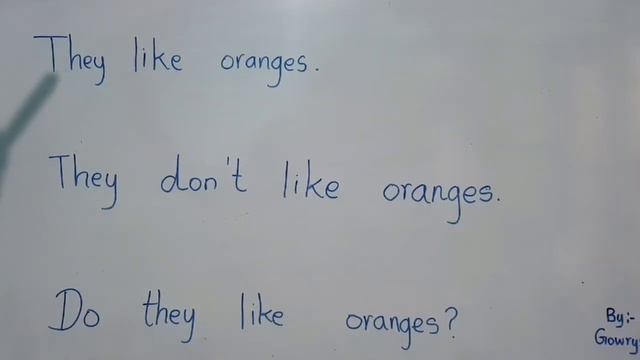 They like oranges.
They don't like oranges.
Do they like oranges?
By:-
Gowry